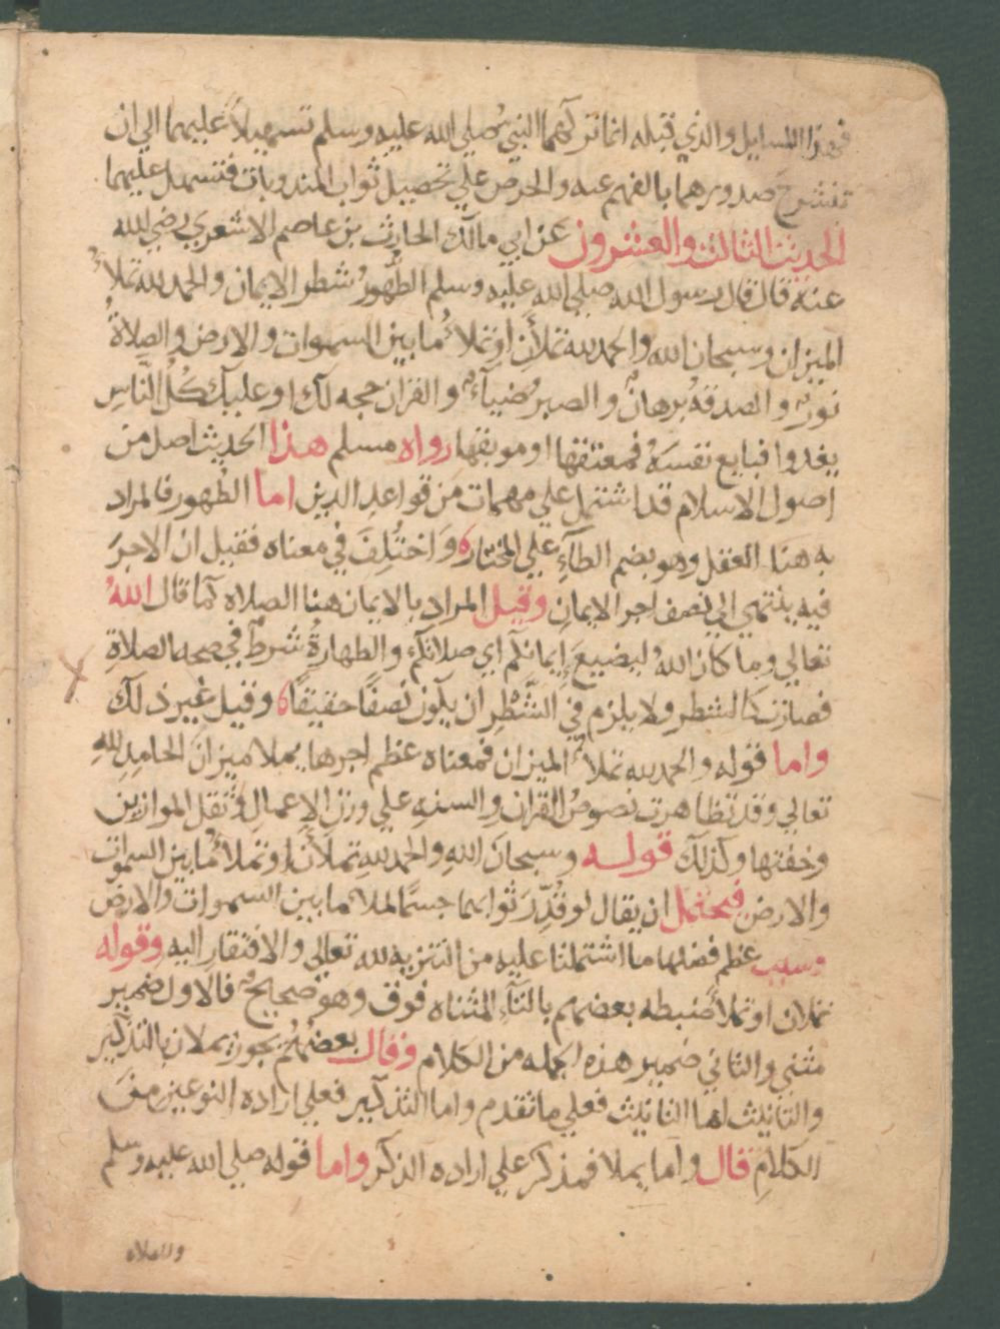 فهذا السايل والذي قبله انما تركهما النبي صلي الله عليه وسلم تسهيلاً عليهما الي ان
تنشرح صدورهما بالفهم عنه والحرص علي تحصيل ثواب المندوبات فتسهل عليهما
الحديث الثالث والعشرون عن ابي مالك الحارث بن عاصم الاشعري رضي الله
عنه قال قال رسول الله صلي الله عليه وسلم الطُّهورُ شطر الايمان والحمد لله تملأُ
الميزان وسبحان الله والحمد لله تملأنِ او تملأُ ما بين السموات والارض والصلاةُ
نورٌ والصدقةُ برهانٌ والصبرُ ضياءٌ والقرآن حجه لك او عليك كُلُّ النَّاسِ
يغدوا فبايع نفسَهُ فمعتقها او موبقها رواه مسلم هذا الحديث اصل من
اصول الاسلام قد اشتمل علي مهمات من قواعد الدين اما الطهور فالمراد
به هنا الفعل وهو بضم الطآءِ علي المختار وَاختُلِفَ في معناه فقيل ان الاجرَ
فيه ينتهي الي نصف اجر الايمانِ وقيل المراد بالايمان هنا الصلاه كما قال اللهُ
تعالي وما كان اللهُ ليضيعَ إيمانكم اي صلاتكم والطهارةُ شرطٌ في صحه الصلاةِ
فصارت كالشطر ولا يلزم في الشَّطْرِ ان يكون نصفًا حقيقًا وقيل غير ذلك
واما قوله والحمد لله تملأُ الميزان فمعناه عظم اجرها يملا ميزانَ الحامدِ لله
تعالي وقد تظاهرت نصوصُ القران والسنه علي وزن الاعمالِ وثقل الموازين
وخفتها وكذلك قوله وسبحانَ اللهِ والحمد للهِ تملآن او تملأُ ما بين السموات
والارض فيحتمل ان يقال لو قُدِّرَ ثوابهما جسمًا لملا ما بين السموات والارض
وسبب عظم فضلها ما اشتملتا عليه من التنزيه لله تعالي والافتقار اليه وقوله
تملان او تملأ ضبطه بعضهم بالتآءِ المثناه فوق وهو صحيحٌ فالاول ضمير
مثني والثاني ضمير هذه الجمله من الكلام وقال بعضُهُم يجوز يملان بالتذكير
والتانيث اما التانيث فعلي ما تقدم واما التذكير فعلي اراده النوعين من
الكلامِ قال واما يملا فمذكر علي اراده الذكر واما قوله صلي الله عليه وسلم
والصلاه